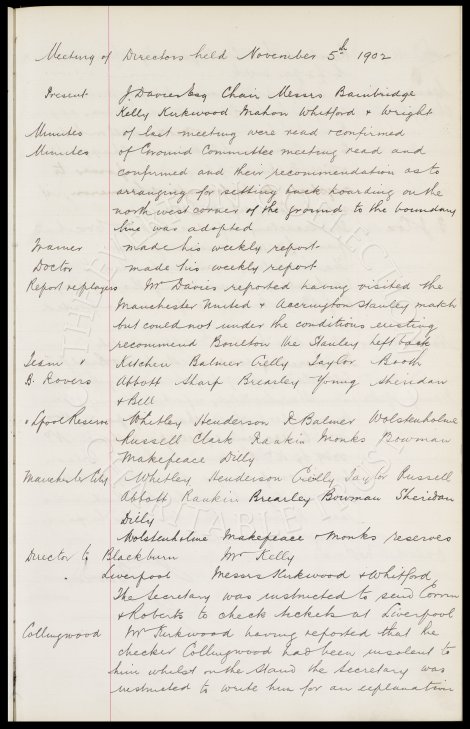 Meeting of Directors held November 5th 1902
Present J. Davies Esq Chair Messrs Bainbridge
Kelly Kirkwood Mahon Whitford & Wright
Minutes of last meeting were read & confirmed
Minutes of Ground Committee meeting read and
confirmed and their recommendation as to
arranging for setting back hoarding on the
north west corner of the ground to the boundary
line was adopted
Trainer made his weekly report
Doctor made his weekly report
Report re players Mr Davies reported having visited the
Manchester United & Accrington Stanley match
but could not under the conditions existing
recommend Boulton the Stanley left back
Team v Kitchen Balmer Crelly Taylor Booth
B. Rovers Abbott Sharp Brearley Young Sheridan
& Bell
v Lpool Reserve Whitley Henderson R Balmer Wolstenholme
Russell Clark Rankin Monks Bowman
Makepeace Dilly
Manchester City Whitley Henderson Crelly Taylor Russell
Abbott Rankin Brearley Bowman Sheridan
Dilly
Wolstenholme Makepeace & Monks reserves
Director to Blackburn Mr Kelly
" Liverpool Messrs Kirkwood & Whitford
The Secretary was instructed to send
& Roberts to check tickets at Liverpool
Collingwood Mr Kirkwood having reported that the
checker Collingwood had been insolent to
him whilst on the Stand the Secretary was
instructed to write him for an explanation